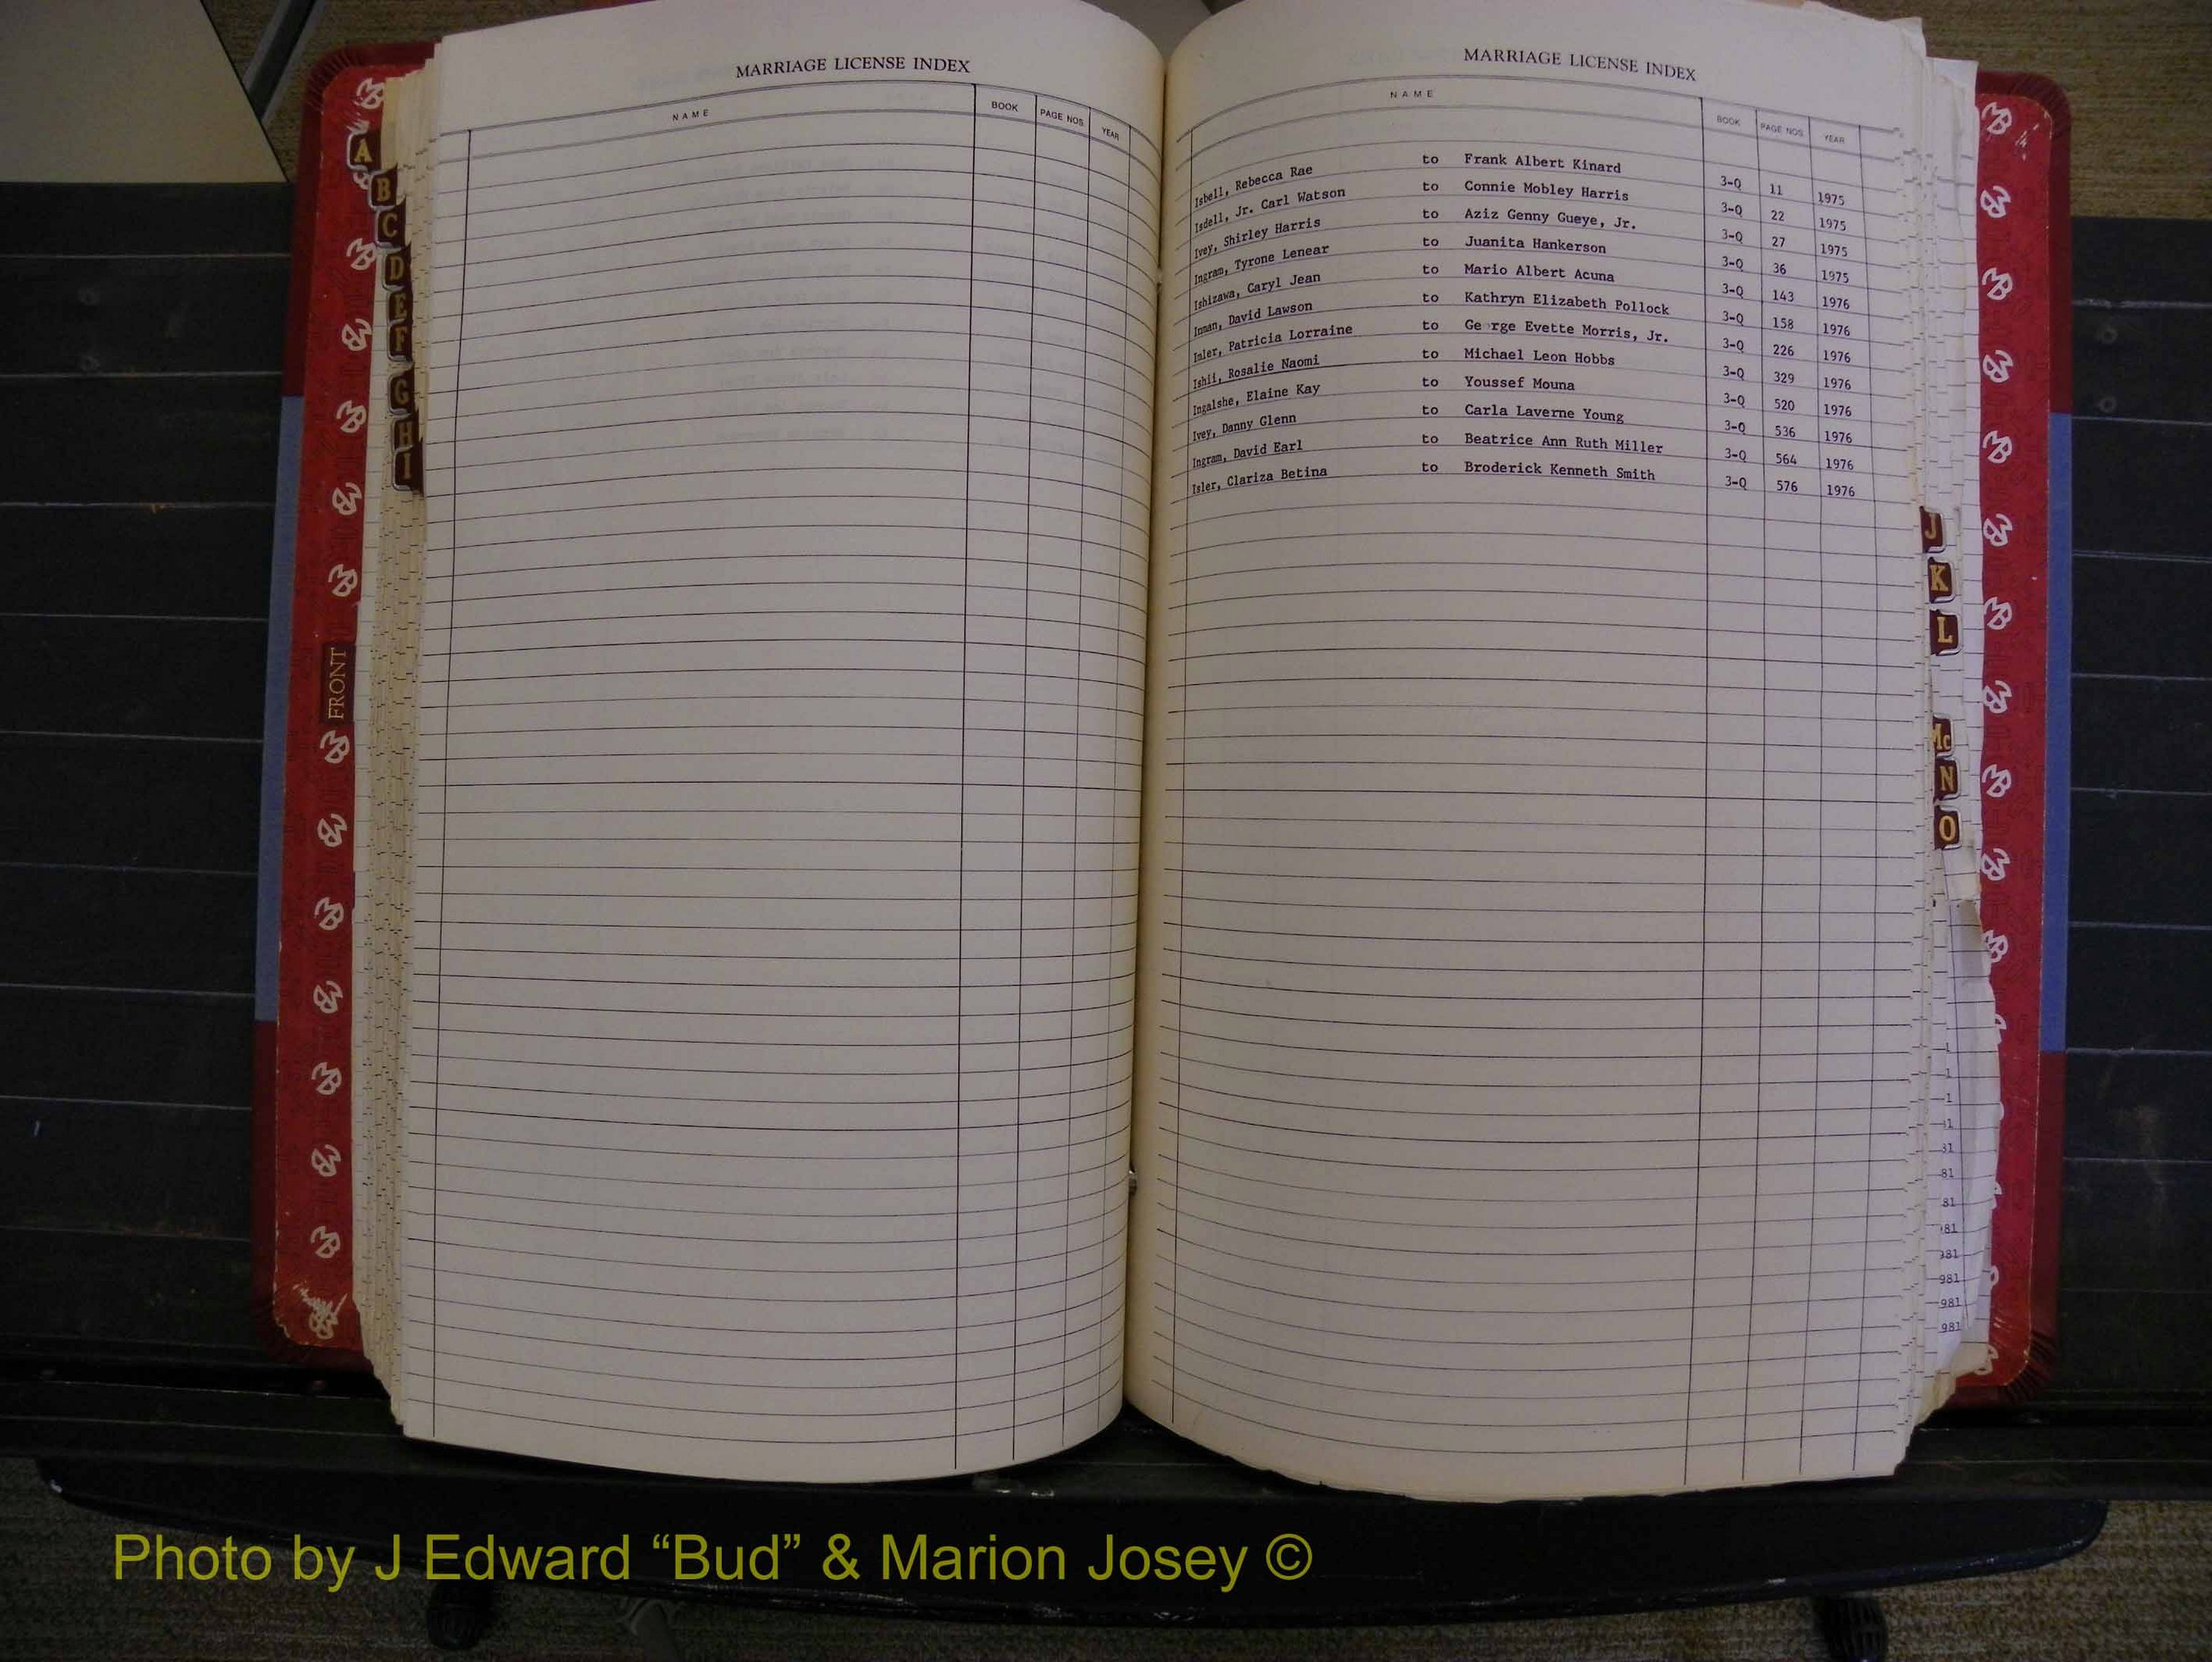 MARRIAGE LICENSE INDEX
NAME BOOK PAGE NOS. YEAR
A
B
C
D
E
F
G
H
I
FRONT
MARRIAGE LICENSE INDEX
NAME BOOK PAGE NOS. YEAR
Isbell, Rebecca Rae to Frank Albert Kinard 3-Q 11 1975
Isdell, Jr. Carl Watson to Connie Mobley Harris 3-Q 22 1975
Ivey, Shirley Harris to Aziz Genny Gueye, Jr. 3-Q 27 1975
Ingram, Tyrone Lenear to Juanita Hankerson 3-Q 36 1975
Ishizawa, Caryl Jean to Mario Albert Acuna 3-Q 143 1976
Inman, David Lawson to Kathryn Elizabeth Pollock 3-Q 158 1976
Inler, Patricia Lorraine to George Evette Morris, Jr. 3-Q 226 1976
Ishii, Rosalie Naomi to Michael Leon Hobbs 3-Q 329 1976
Ingalshe, Elaine Kay to Youssef Mouna 3-Q 520 1976
Ivey, Danny Glenn to Carla Laverne Young 3-Q 536 1976
Ingram, David Earl to Beatrice Ann Ruth Miller 3-Q 564 1976
Isler, Clariza Betina to Broderick Kenneth Smith 3-Q 576 1976
J
K
L
Mc
N
O
1
1
1
1
31
81
81
81
981
981
981
981
Photo by J Edward “Bud” & Marion Josey ©